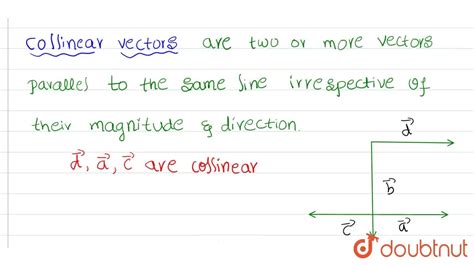 Collinear vectors are two or more vectors
parallel to the same line irrespective of
their magnitude & direction.
d⃗, a⃗, c⃗ are collinear
d⃗
b⃗
c⃗ a⃗
doubtnut